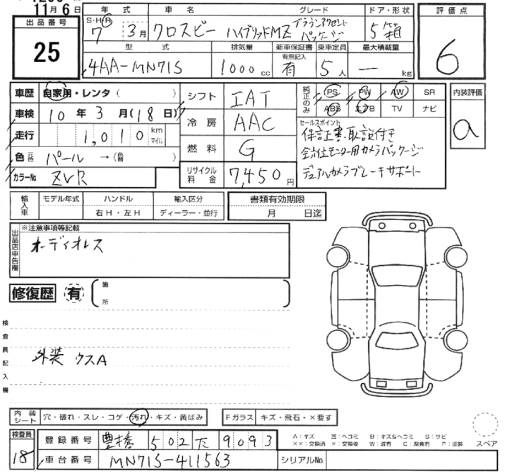 11月6日
出品番号
25
年式
車名
グレード
ドア・形状
評価点
S・H・R
7年 3月
クロスビー ハイブリッドMZ
パッケージ
5
6
型式
排気量
新車保証書
乗車定員
最大積載量
4AA-MN71S
1000cc
有無記入
有
5人
kg
車歴
自家用・レンタ
シフト
IAT
純正のみ
PS
PW
AW
SR
内装評価
ABS
エアB
TV
ナビ
a
車検
10年 3月(18日)
冷房
AAC
セールスポイント
保証書、取説付き
全方位モニター用カメラパッケージ
デュアルカメラブレーキサポート
走行
1,010
km
マイル
燃料
G
色
パール
カラーNo
ZVR
リサイクル料金
7,450円
輸入車
モデル年式
ハンドル
右H・左H
輸入区分
ディーラー・並行
書類有効期限
月 日迄
出品店申告欄
※注意事項等記載
オーディオレス
修復歴
有
箇所
検査員記入欄
外装 ウスA
内装シート
穴・破れ・スレ・コゲ・汚れ・キズ・黄ばみ
Fガラス
キズ・飛石・×要す
スペア
検査員
18
登録番号
豊橋 502 て 9093
車台番号
MN71S-411563
シリアルNo.